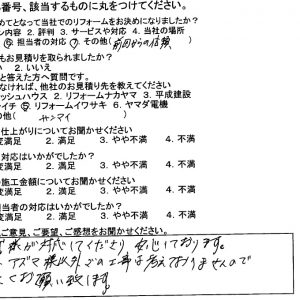 番号、該当するものに丸をつけてください。
めてとなって当社でのリフォームをお決めになりましたか?
ン内容 2. 評判 3. サービスや対応 4. 当社の場所
⑥ 担当者の対応 ⑦ その他( 前回からの信頼
もお見積りを取られましたか?
い 2. いいえ
と答えた方へ質問です。
なければ、他社のお見積り先を教えてください
ッシュハウス 2. リフォームナカヤマ 3. 平成建設
イチ ⑤ リフォームイワサキ 6. ヤマダ電機
の他( サンマイ
仕上がりについてお聞かせください
変満足 2. 満足 3. やや不満 4. 不満
対応はいかがでしたか?
変満足 2. 満足 3. やや不満 4. 不満
の施工金額についてお聞かせください
変満足 2. 満足 3. やや不満 4. 不満
担当者の対応はいかがでしたか?
変満足 2. 満足 3. やや不満 4. 不満
ご意見、ご要望、ご感想をお聞かせください。
様が対応してくださり 感じております。
アズマ様以外での工事は考えておりませんので
くお願い致します。